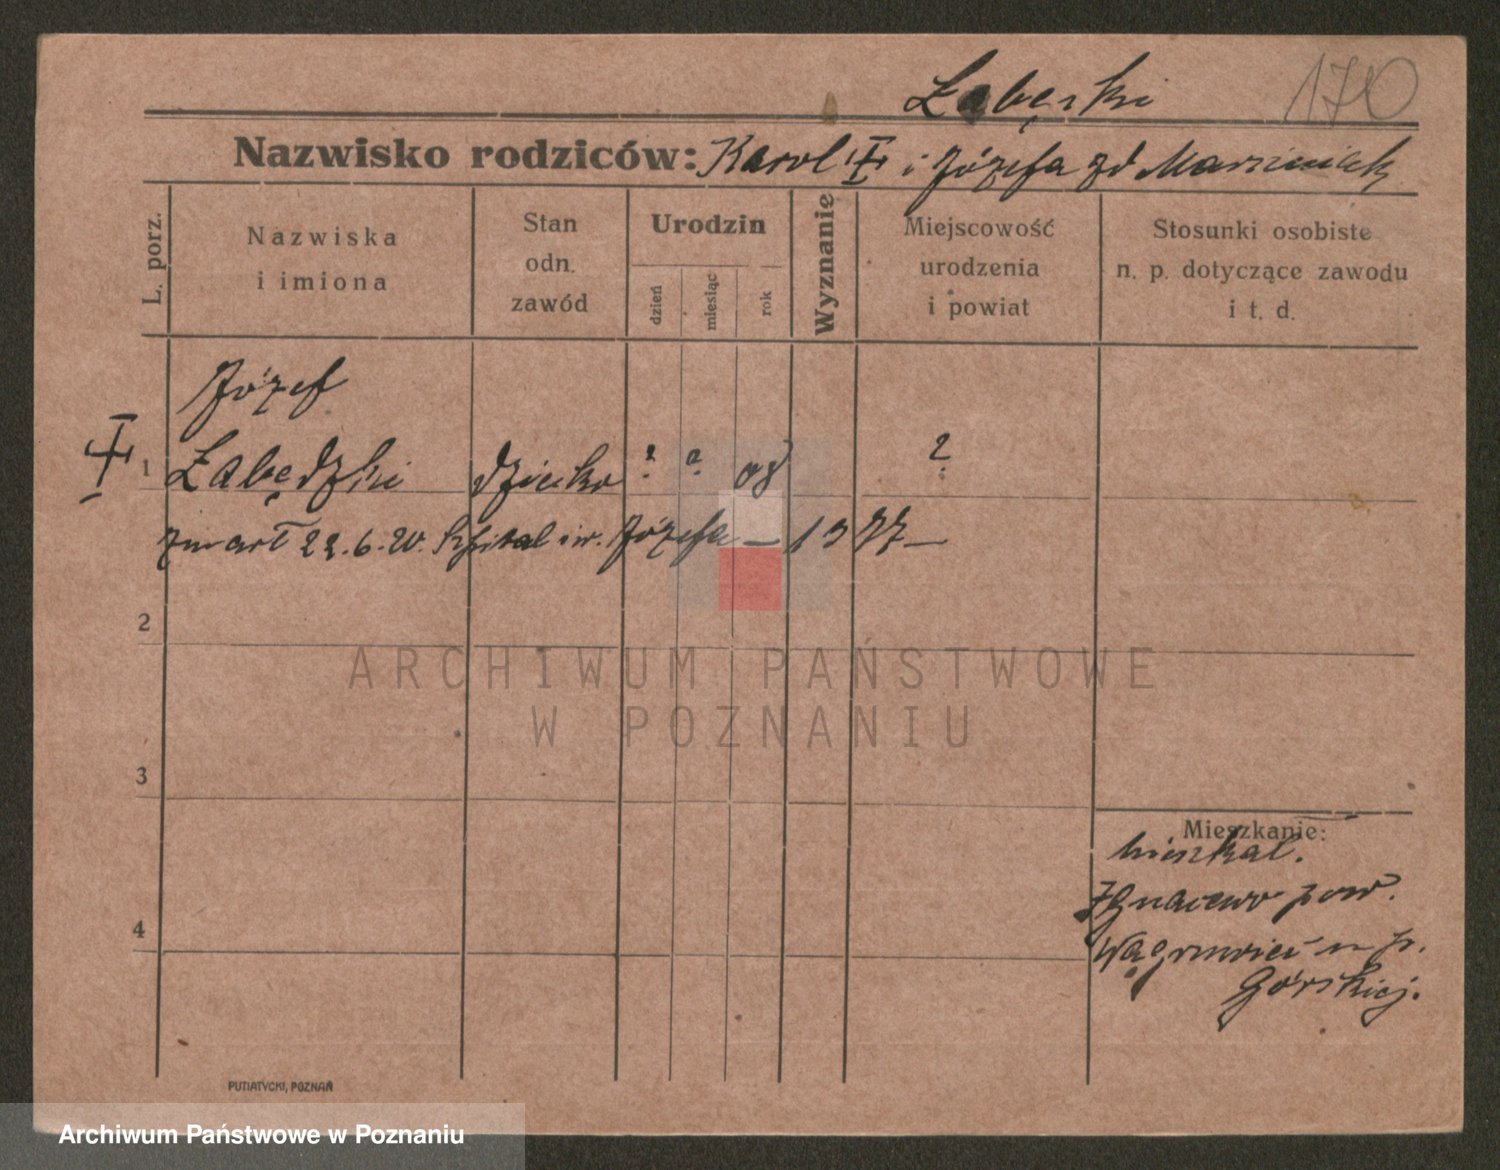 Łabęski
170
Nazwisko rodziców: Karol ‡ i Józefa zd Marciniak
L. porz.
Nazwiska
i imiona
Stan
odn.
zawód
Urodzin
dzień
miesiąc
rok
Wyznanie
Miejscowość
urodzenia
i powiat
Stosunki osobiste
n. p. dotyczące zawodu
i t. d.
Józef
1 Łabędzki dziecko ? ? 08 ?
zmarł 22.6.20. Szpital św. Józefa — 1377 —
2
3
4
Mieszkanie:
mieszkał.
Ignacewo pow.
Wągrowiec u p.
Górskiej.
PUTIATYCKI, POZNAŃ
ARCHIWUM PAŃSTWOWE
W POZNANIU
Archiwum Państwowe w Poznaniu